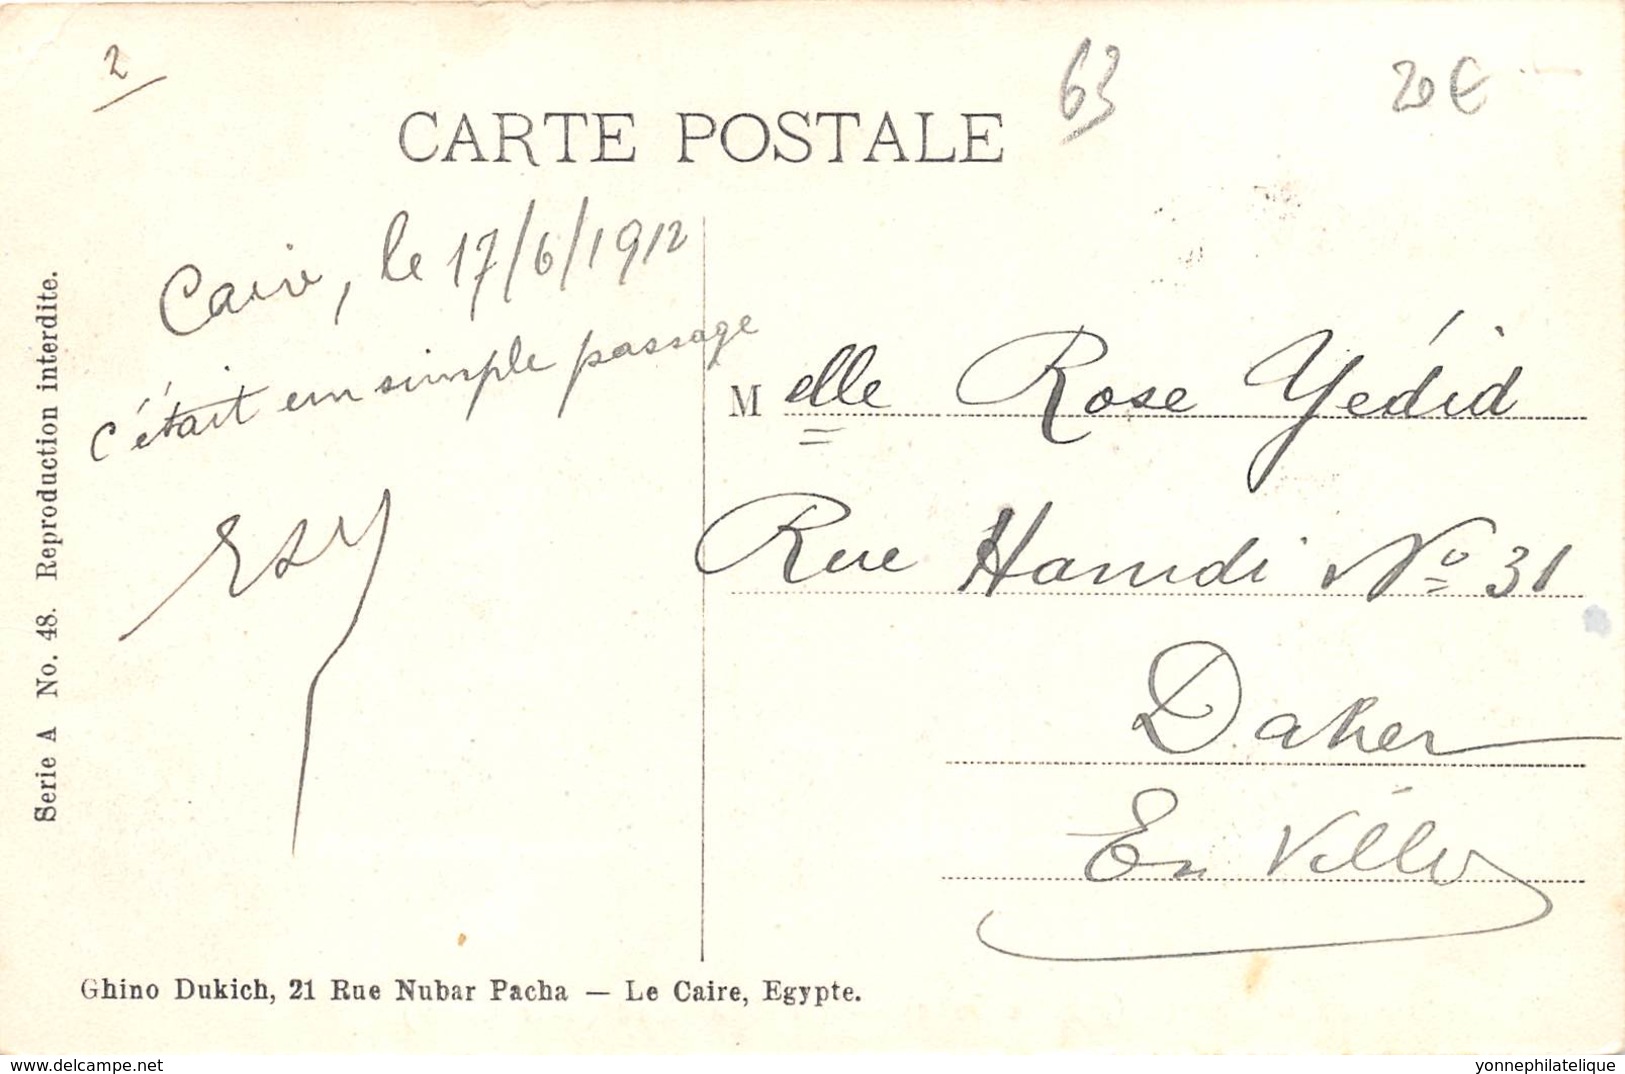 2
63
20€
CARTE POSTALE
Caire, le 17/6/1912
c'était un simple passage
Melle Rose Yédid
Rue Hamdi No 31
Daher
En Ville
Serie A No. 48. Reproduction interdite.
Ghino Dukich, 21 Rue Nubar Pacha — Le Caire, Egypte.
www.delcampe.net
yonnephilatelique